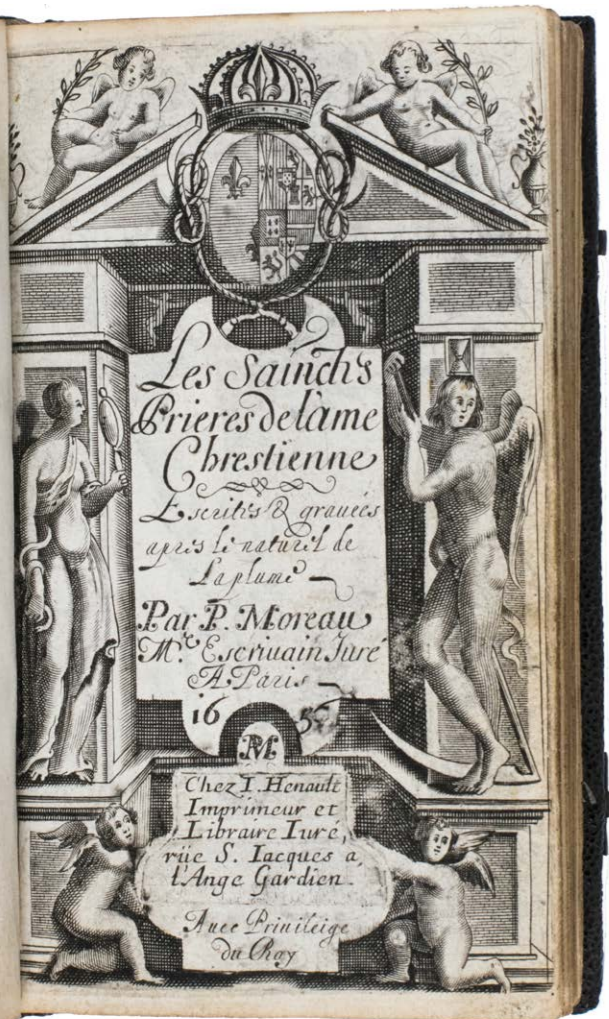 Les Sainctes
Prieres de l'ame
Chrestienne
Escrites & gravées
apres le naturel de
La plume
Par P. Moreau
Me. Escrivain Juré
A Paris
16 56
PM
Chez I. Henault
Imprimeur et
Libraire Iuré,
rüe S. Iacques a
l'Ange Gardien.
Avec Privileige
du Roy